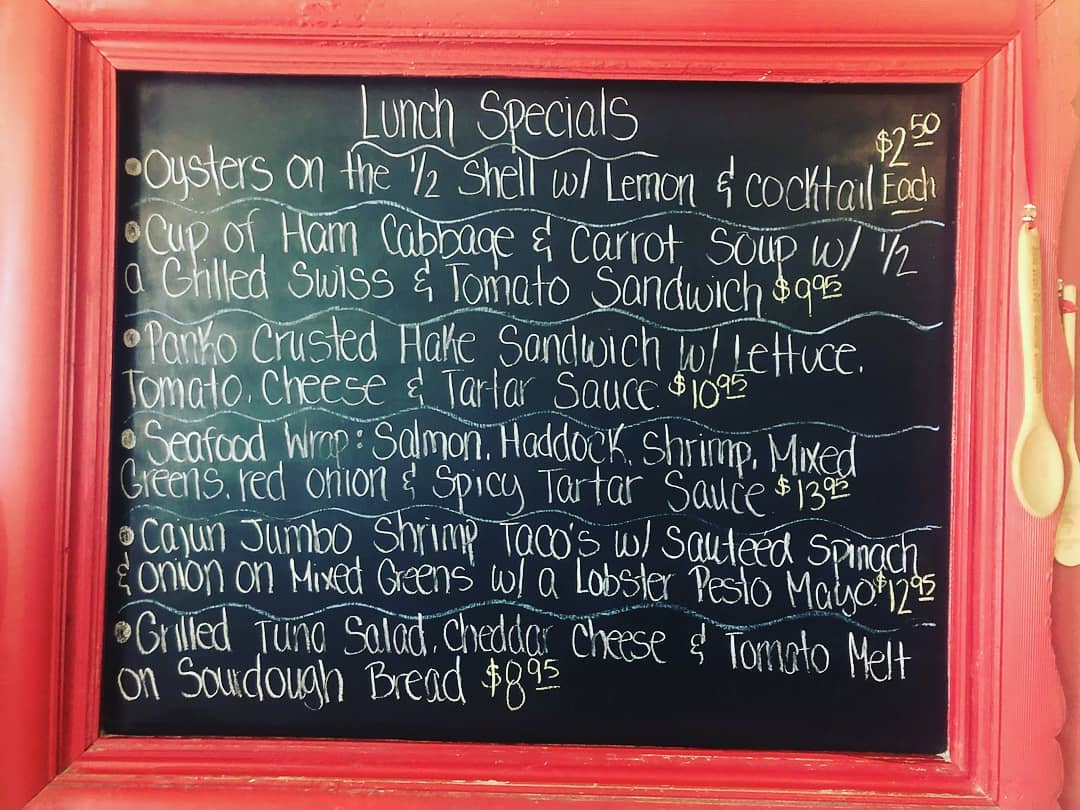 Lunch Specials
• Oysters on the 1/2 Shell w/ Lemon & cocktail $2.50 Each
• Cup of Ham Cabbage & Carrot Soup w/ 1/2
a Grilled Swiss & Tomato Sandwich $9.95
• Panko Crusted Hake Sandwich w/ Lettuce,
Tomato, Cheese & Tartar Sauce $10.95
• Seafood Wrap: Salmon, Haddock, Shrimp, Mixed
Greens, red onion & Spicy Tartar Sauce $13.95
• Cajun Jumbo Shrimp Taco's w/ Sauteed Spinach
& onion on Mixed Greens w/ a Lobster Pesto Mayo $12.95
• Grilled Tuna Salad, Cheddar Cheese & Tomato Melt
on Sourdough Bread $8.95